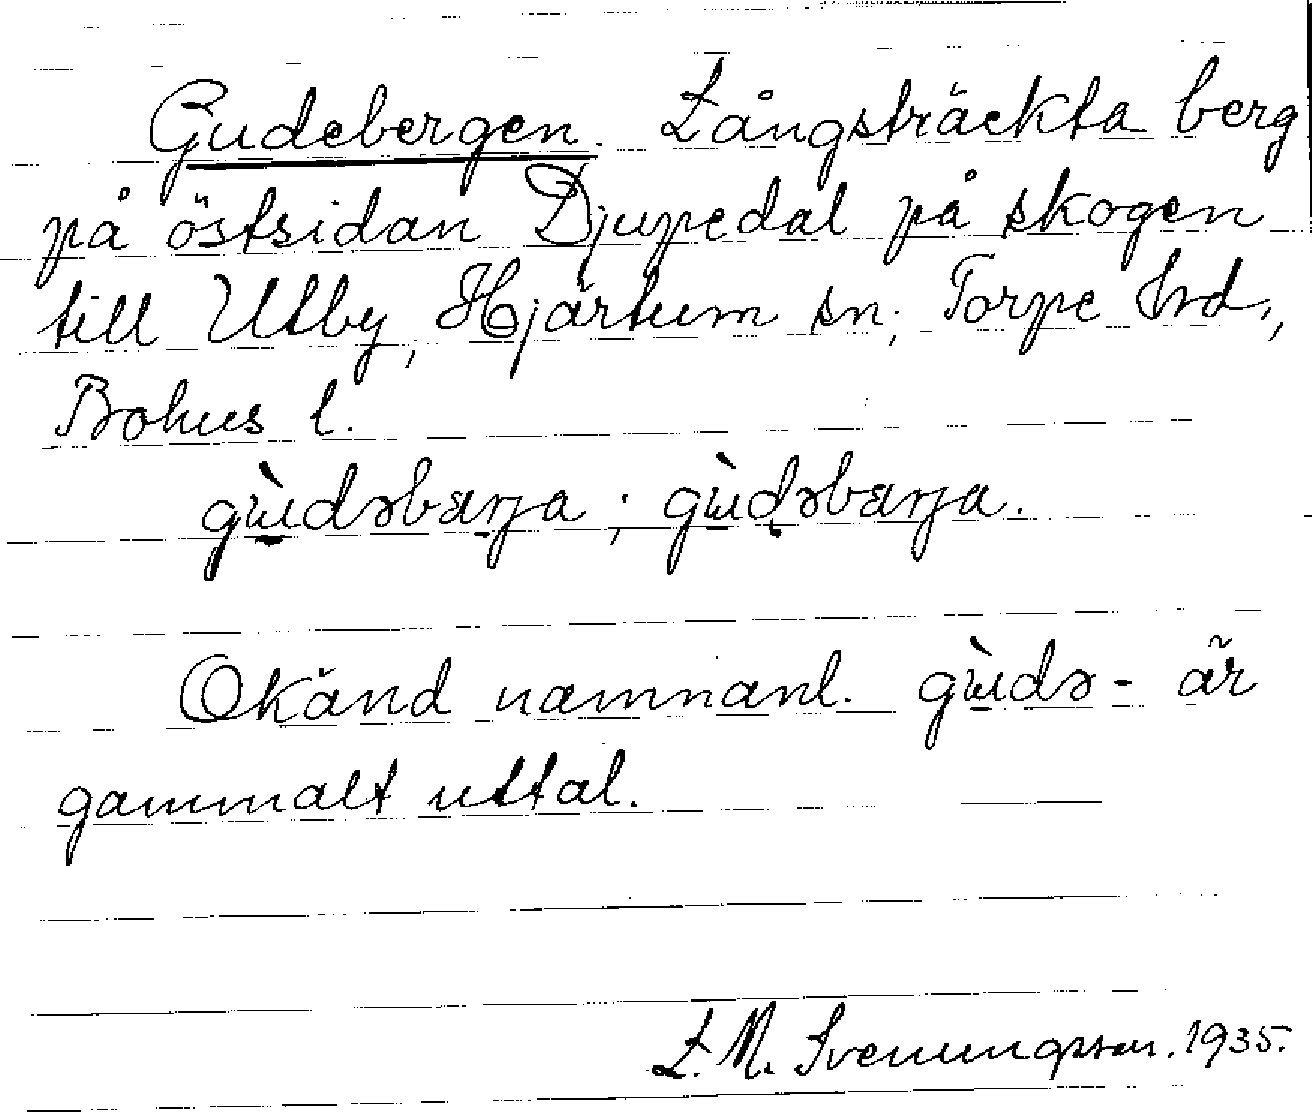 Gudebergen. Långsträckta berg
på östsidan Djupedal på skogen
till Utby, Hjärtum sn; Torpe hrd.,
Bohus l.
gɯ̀dəbærja ; gɯ̀dəbærja.
Okänd namnanl. gɯ̀də- är
gammalt uttal.
L. M. Svenungsson. 1935.